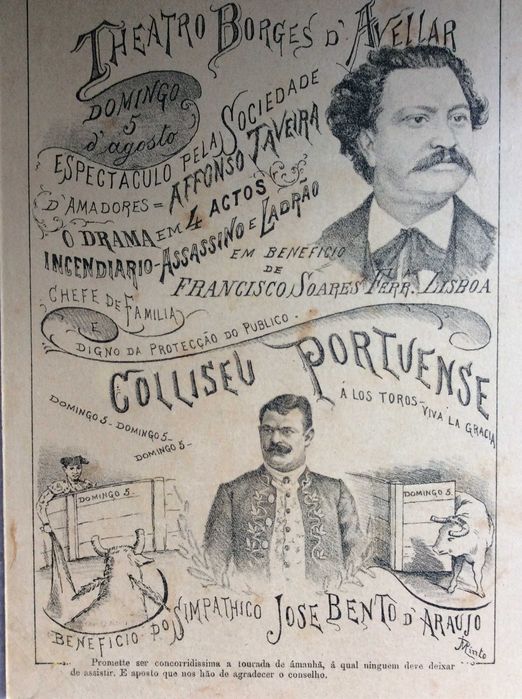 THEATRO BORGES D'AVELLAR
DOMINGO
5
d'agosto
ESPECTACULO PELA SOCIEDADE
D'AMADORES = AFFONSO TAVEIRA
O DRAMA EM 4 ACTOS
INCENDIARIO-ASSASSINO E LADRÃO
EM BENEFICIO
DE
FRANCISCO SOARES FERR.ª LISBOA
CHEFE DE FAMILIA
E
DIGNO DA PROTECÇÃO DO PUBLICO.
COLLISEU PORTUENSE
Á LOS TOROS-VIVA LA GRACIA
DOMINGO 5- DOMINGO 5-
DOMINGO 5-
DOMINGO 5
DOMINGO 5.
BENEFICIO DO SIMPATHICO JOSE BENTO D'ARAUJO
Pinto
Promette ser concorridissima a tourada de ámanhã, á qual ninguem deve deixar
de assistir. E aposto que nos hão de agradecer o conselho.